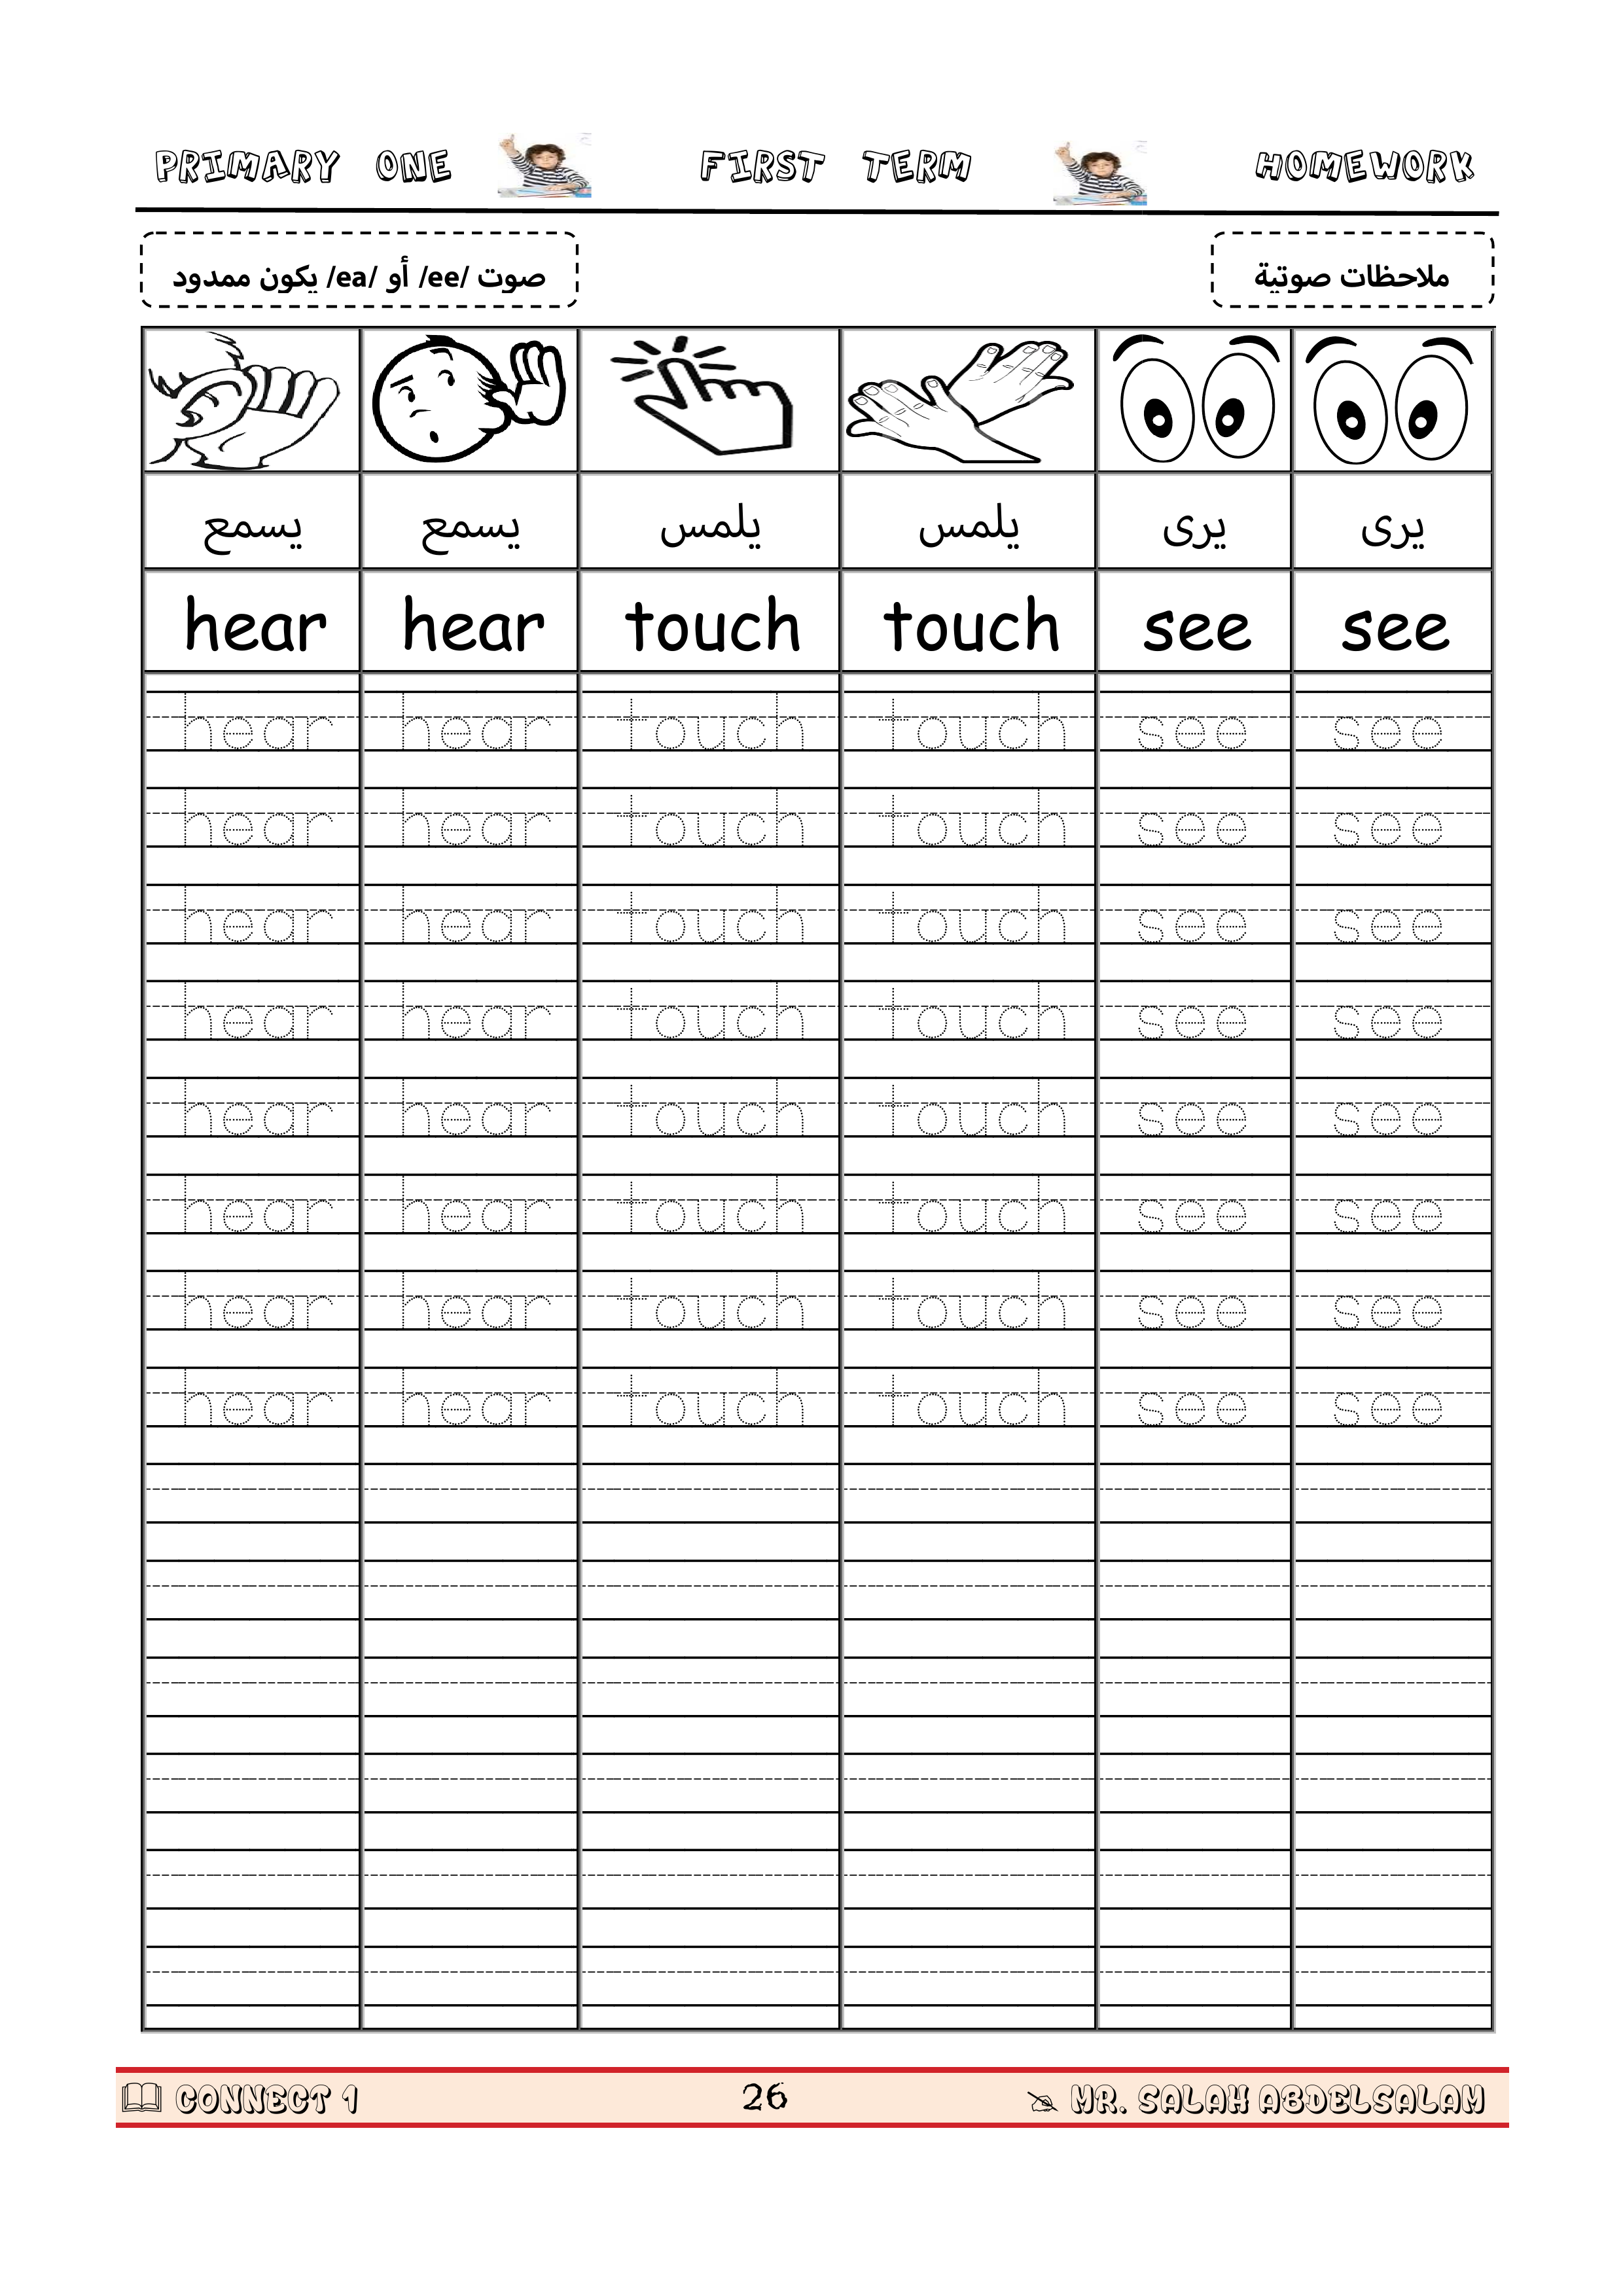 PRIMARY ONE FIRST TERM HOMEWORK
ملاحظات صوتية
صوت /ee/ أو /ea/ يكون ممدود
يسمع يسمع يلمس يلمس يرى يرى
hear hear touch touch see see
hear hear touch touch see see
hear hear touch touch see see
hear hear touch touch see see
hear hear touch touch see see
hear hear touch touch see see
hear hear touch touch see see
hear hear touch touch see see
hear hear touch touch see see
CONNECT 1 26 MR. SALAH ABDELSALAM